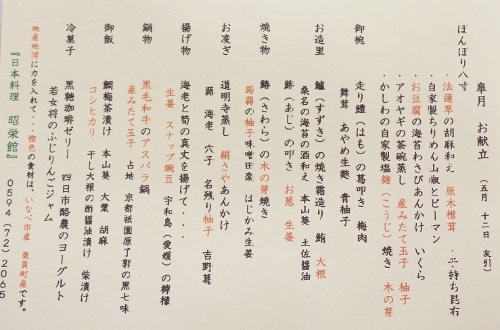 皐月　お献立　（五月　十二日　友引）
ぼんぼり八寸
・法蓮草の胡麻和え　原木椎茸　・子持ち昆布
・自家製ちりめん山椒とピーマン
・お豆腐の海苔わさびあんかけ　いくら
・アオヤギの茶碗蒸し　産みたて玉子　柚子
・かしわの自家製塩麹（こうじ）焼き　木の芽
御椀　走り鱧（はも）の葛叩き　梅肉
舞茸　あやめ生麩　青柚子
お造里　鱸（すずき）の焼き霜造り　鮪　大根
桑名の海苔の酒和え　本山葵　土佐醤油
鯵（あじ）の叩き　お葱　生姜
焼き物　鰆（さわら）の木の芽焼き
蒟蒻の柚子味噌田楽　はじかみ生姜
お凌ぎ　道明寺蒸し　絹さやあんかけ
蕗　海老　穴子　名残り柚子　吉野葛
揚げ物　海老と筍の真丈を揚げて・・・
生姜　スナップ豌豆　宇和島（愛媛）の檸檬
鍋物　黒毛和牛のアスパラ鍋
産みたて玉子　占地　京都祇園原了郭の黒七味
御飯　鯛梅茶漬け　本山葵　大葉　胡麻
コシヒカリ　干し大根の酢醤油漬け　柴漬け
冷菓子　黒糖珈琲ゼリー　四日市酪農のヨーグルト
若女将のふじりんごジャム
地産地消に力を入れて・・橙色の食材は、いなべ市産　東員町産です。
『日本料理　昭栄館』　０５９４（７２）２０６５